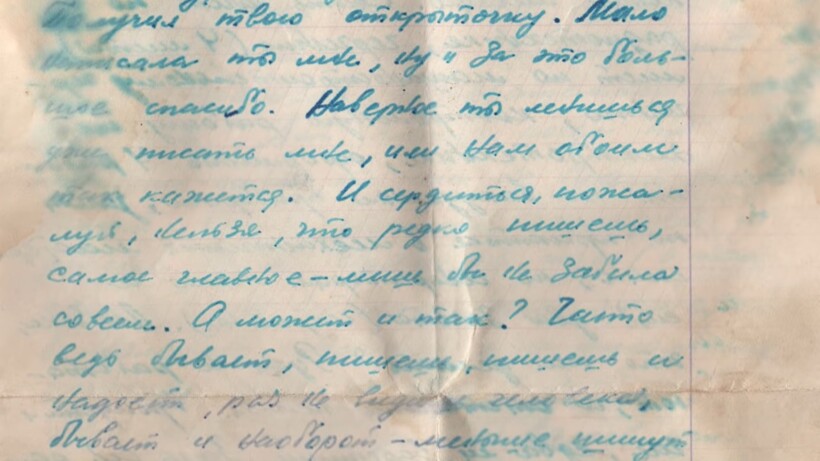 Получил твою открыточку. Мало
написала ты мне, ну и за это боль-
шое спасибо. Наверное ты ленишься
уже писать мне, или нам обоим
так кажется. И сердиться, пожа-
луй, нельзя, что редко пишешь,
самое главное – лишь бы не забыла
совсем. А может и так? Часто
ведь бывает, пишешь, пишешь и
надоест, раз не видишь человека,
бывает и наоборот – меньше пишут